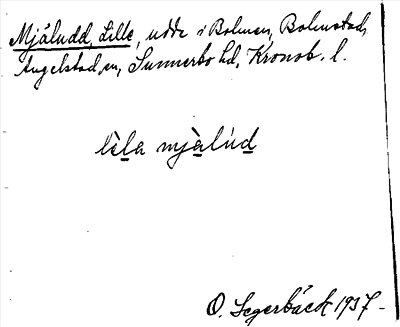 Mjäludd, Lille, udde i Bolmen, Bolmstad,
Angelstad sn, Sunnerbo hd, Kronob. l.
lèla mjàlúd
O. Segerbäck 1937 -